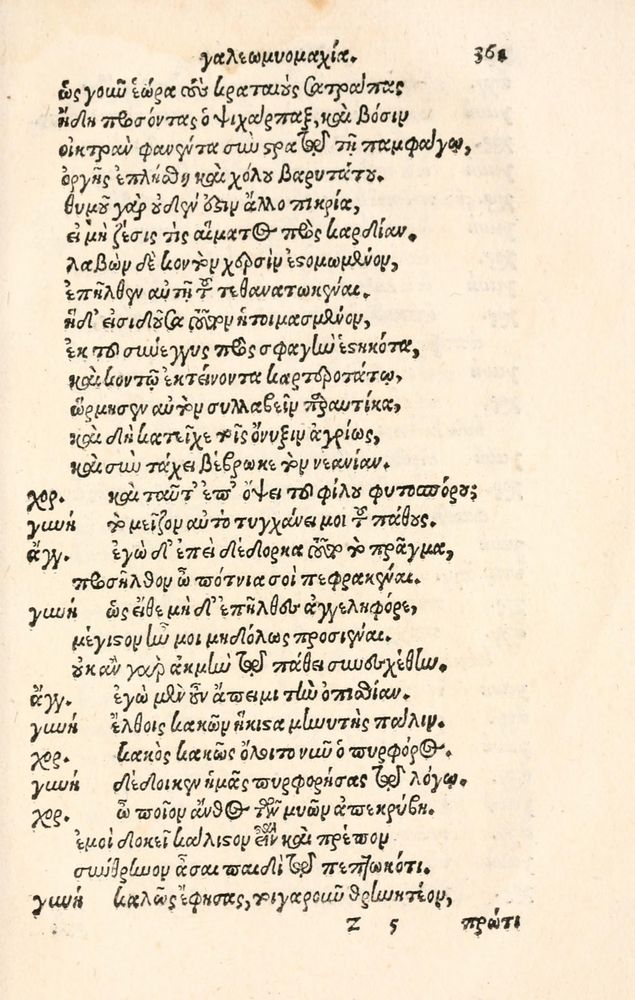 γαλεωμυομαχία. 361
ὡς γοιῦ ἑώρα τοὺς κραταιοὺς σατράπας
ἤδη πεσόντας ὁ ψιχάρπαξ, καὶ βόσιν
οἰκτρὰν φανέντα σὺν στρατῷ τῇ παμφάγῳ,
ὀργῆς ἐπλήσθη καὶ χόλου βαρυτάτου.
θυμοῦ γὰρ οὐδέν ἐστιν ἄλλο πικρία,
εἰ μὴ ζέσις τὶς αἵματος πρὸς καρδίαν.
λαβὼν δὲ κοντὸν χερσὶν ἐστομωμένον,
ἐπῆλθεν αὐτῇ τοῦ τεθανατωκέναι.
ἡ δ' εἰσιδοῦσα τοῦτον ἡτοιμασμένον,
ἐκ τοῦ σύνεγγυς πρὸς σφαγὴν ἑστηκότα,
καὶ κοντῷ ἐκτείνοντα καρτεροτάτῳ,
ὥρμησεν αὐτὸν συλλαβεῖν παραυτίκα,
καὶ δὴ κατεῖχε τοῖς ὄνυξιν ἀγρίως,
καὶ σὺν τάχει βέβρωκε τὸν νεανίαν.
χορ. καὶ ταῦτ' ἐπ' ὄψει τοῦ φίλου φυτοσπόρου;
γυνή τὸ μεῖζον αὐτὸ τυγχάνει μοι τοῦ πάθους.
ἄγγ. ἐγὼ δ' ἐπεὶ δέδορκα τοῦτο τὸ πρᾶγμα,
προσῆλθον ὦ πότνια σοὶ πεφρακέναι.
γυνή ὡς εἴθε μὴ δ' ἐπῆλθες ἀγγεληφόρε,
μέγιστον ὦν μοι μηδόλως προσιέναι.
οὐκ ἂν γὰρ ἀκμὴν τῷ πάθει συνεσχέθην.
ἄγγ. ἐγὼ μὲν οὖν ἄπειμι τὴν ὀπισθίαν.
γυνή ἔλθοις κακῶν ἥκιστα μηνυτὴς πάλιν.
χορ. κακὸς κακῶς ὄλοιτο νιῦ ὁ πυρφόρος.
γυνή δέδοικεν ἡμᾶς πυρφορήσας τῷ λόγῳ.
χορ. ὦ ποῖον ἄνθος τῶν μυῶν ἀπεκρύβη.
ἐμοὶ δοκεῖ κάλλιστον εἶναι καὶ πρέπον
σύνθρηνον ᾆσαι παιδὶ τῷ πεπτωκότι.
γυνή καλῶς ἔφησας, τοιγαροῦν θρηνητέον,
Z 5 πρῶτι